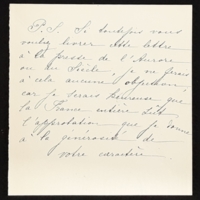 P.S. Si toutefois vous
vouliez livrer cette lettre
à la presse de l'Aurore
ou du Siècle, je ne ferais
à cela aucune objection,
car je serais heureuse que
la France entière sût
l'approbation que je donne
à la générosité de
votre caractère.